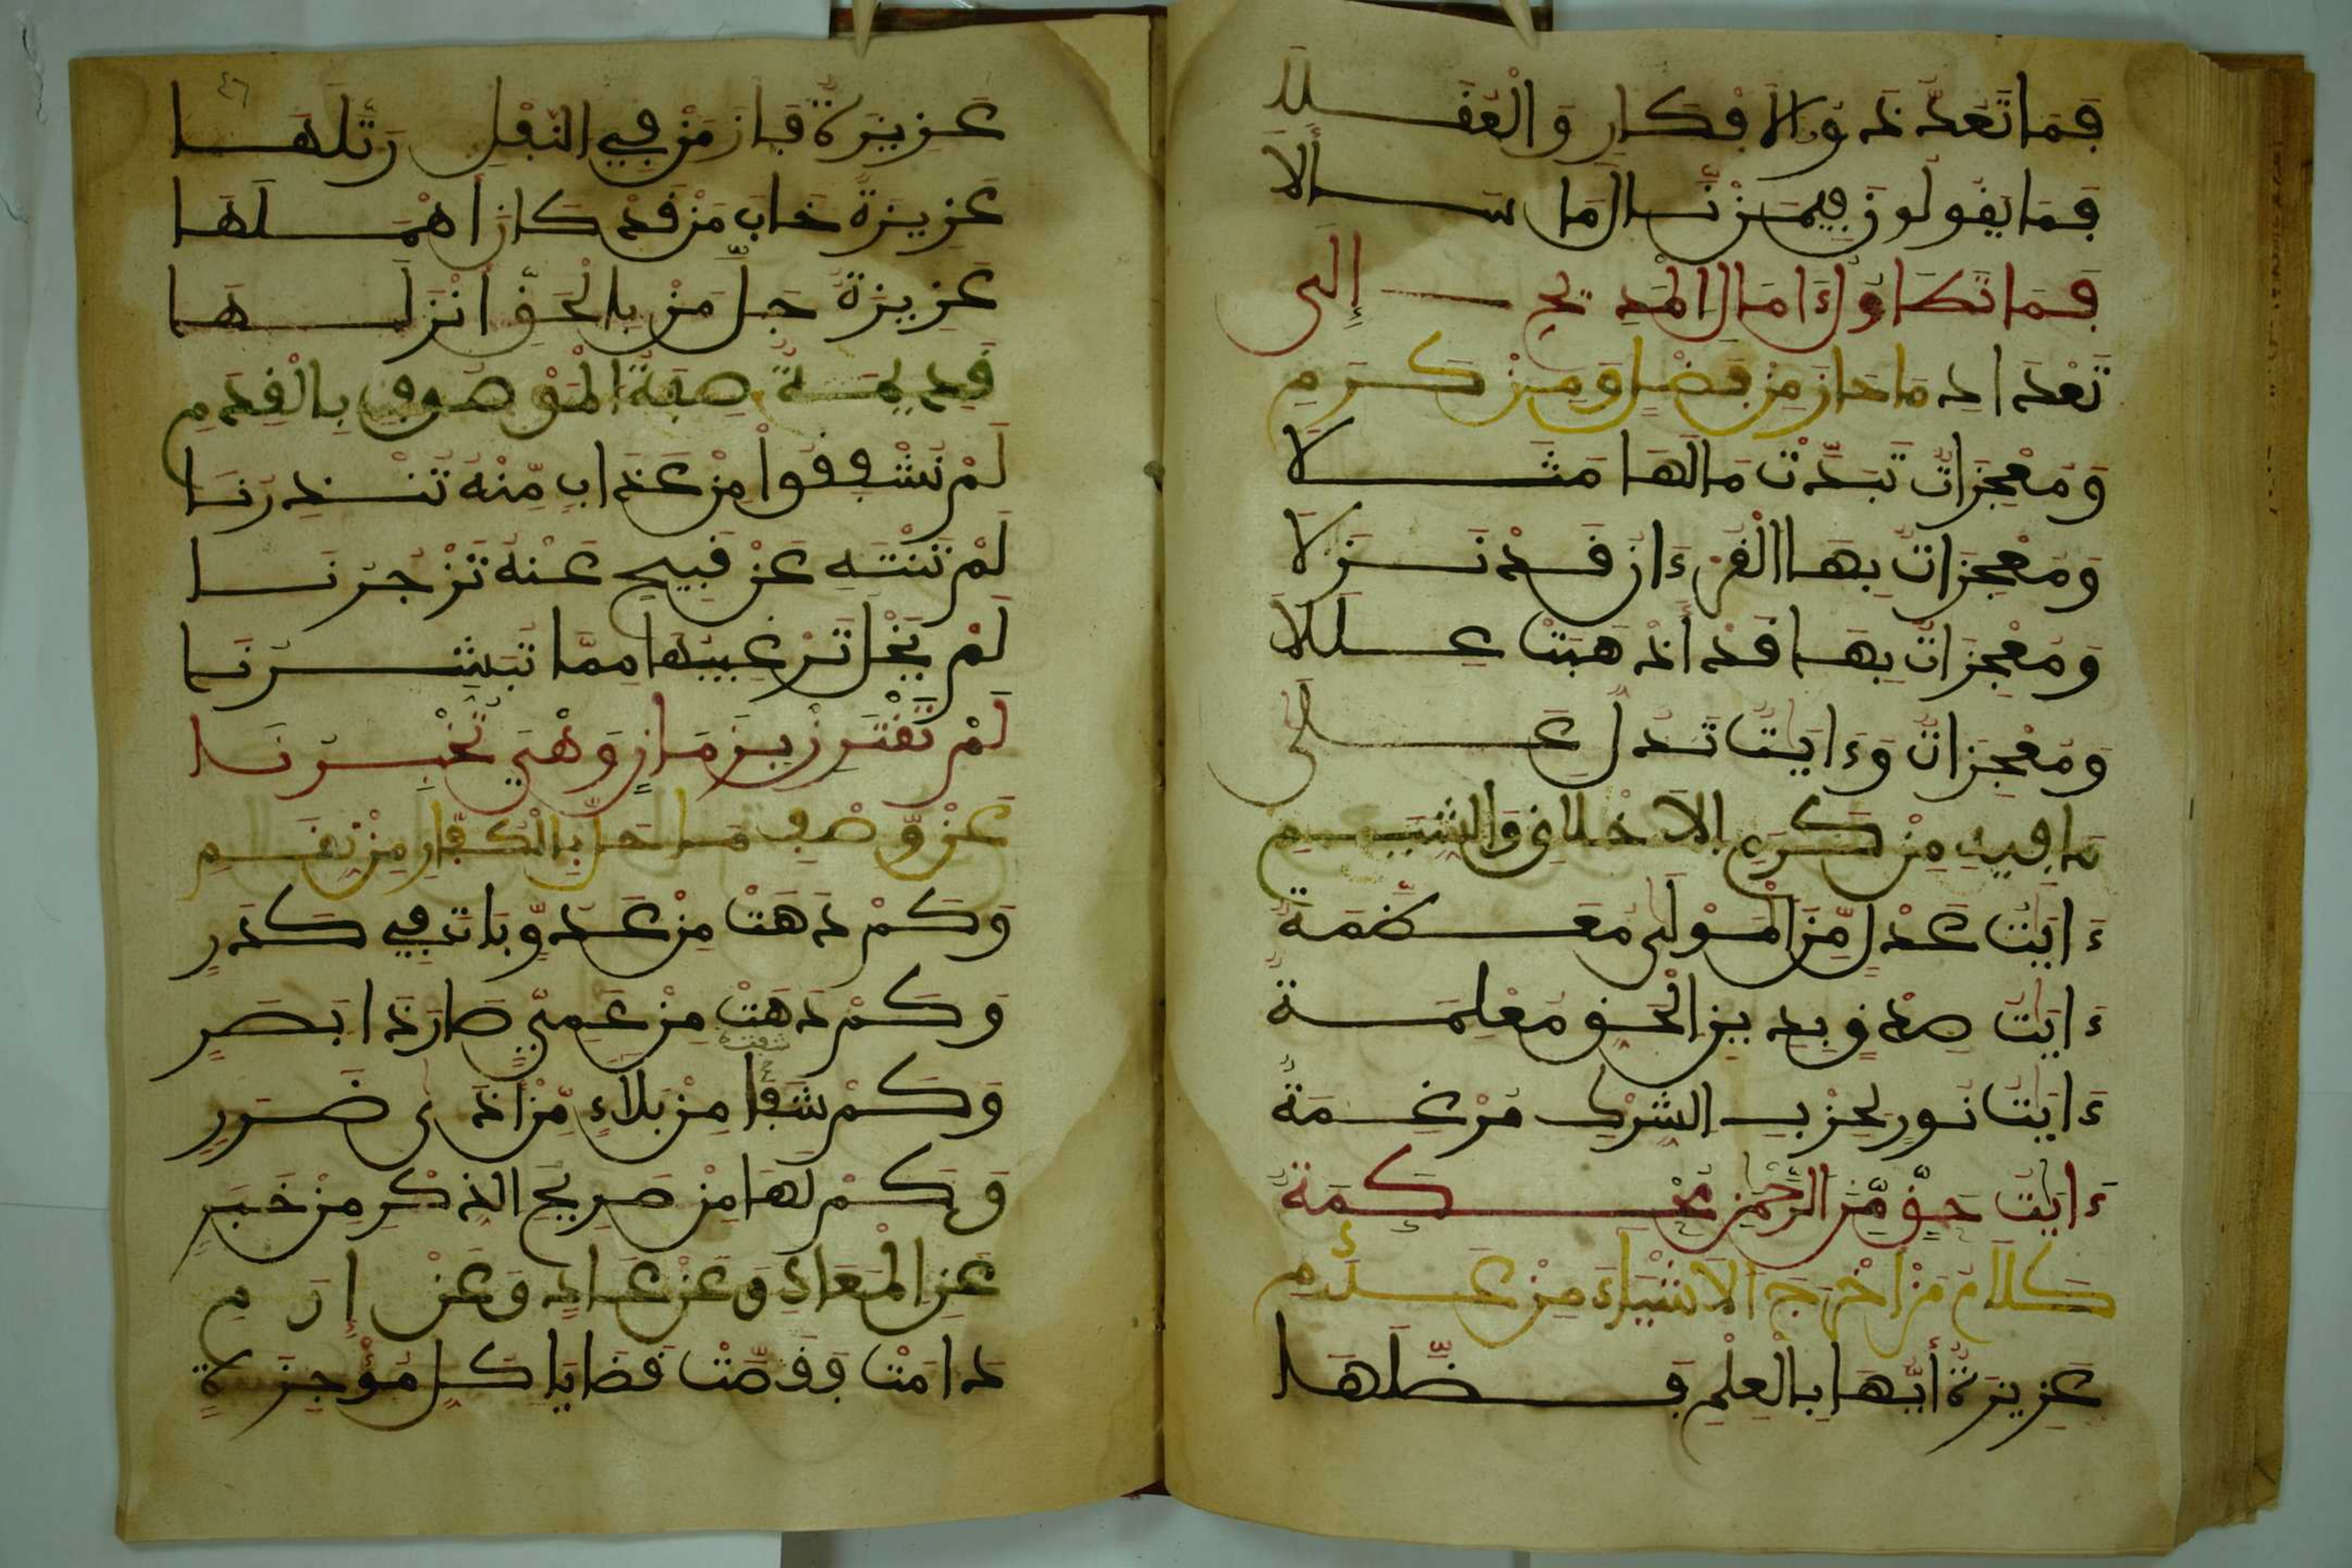 فَمَا تَعُدُّ ذَوُو الْأَفْكَارِ وَالْعُقَلَا
فَمَا يَقُولُونَ فِيمَنْ نَالَ مَا سَأَلَا
فَمَا تَطَاوُلُ ءَامَالِ الْمَدِيحِ إِلَى
تَعْدَادِ مَا حَازَ مِنْ فَضْلٍ وَمِنْ كَرَمِ
وَمُعْجِزَاتٌ تَبَدَّتْ مَا لَهَا مَثَلَا
وَمُعْجِزَاتٌ بِهَا الْقُرْءَانُ قَدْ نَزَلَا
وَمُعْجِزَاتٌ بِهَا قَدْ أَذْهَبَتْ عِلَلَا
وَمُعْجِزَاتٌ وَءَايَاتٌ تَدُلُّ عَلَى
مَا فِيهِ مِنْ كَرَمِ الْأَخْلَاقِ وَالشِّيَمِ
ءَايَاتُ عَدْلٍ مِّنَ الْمَوْلَى مُعَظَّمَةٌ
ءَايَاتُ صِدْقٍ بِدِينِ الْحَقِّ مُعْلِمَةٌ
ءَايَاتُ نُورٍ لِحِزْبِ الشِّرْكِ مُرْغِمَةٌ
ءَايَاتُ حَقٍّ مِّنَ الرَّحْمَنِ مُحْكَمَةٌ
كَلَامُ مَنْ أَخْرَجَ الْأَشْيَاءَ مِنْ عَدَمِ
عَزِيزَةٌ أَيُّهَا بِالْعِلْمِ فَضَّلَهَا
٤٦
عَزِيزَةٌ فَازَ مَنْ فِي النَّفْلِ رَتَّلَهَا
عَزِيزَةٌ خَابَ مَنْ قَدْ كَانَ أَهْمَلَهَا
عَزِيزَةٌ جَلَّ مَنْ بِالْحَقِّ أَنْزَلَهَا
قَدِيمَةٌ صِفَةُ الْمَوْصُوفِ بِالْقِدَمِ
لَمْ نُشْفِقُوا مِنْ عَذَابٍ مِّنْهُ تُنْذِرُنَا
لَمْ نَنْتَهِ عَنْ قَبِيحٍ عَنْهُ تَزْجُرُنَا
لَمْ يَخْلُ تَرْغِيبُهَا مِمَّا تُبَشِّرُنَا
لَمْ تَقْتَرِنْ بِزَمَانٍ وَهْيَ تُخْبِرُنَا
عَنْ وَّصْفِ مَا حَلَّ بِالْكُفَّارِ مِنْ نِقَمِ
وَكَمْ دَهَتْ مِنْ عَدُوٍّ بَاتَ فِي كَدَرِ
وَكَمْ دَهَتْ مِنْ عَمِيٍّ صَارَ ذَا بَصَرِ
شفت
وَكَمْ شَفَا مِنْ بَلَاءٍ مِّنْ أَذَى ضَرَرِ
وَكَمْ لَهَا مِنْ صَرِيحِ الذِّكْرِ مِنْ خَبَرِ
عَنِ الْمَعَادِ وَعَنْ عَادٍ وَعَنْ إِرَمِ
دَامَتْ فَفَصَّتْ قَضَايَا كُلِّ مُؤْجِزَةٍ